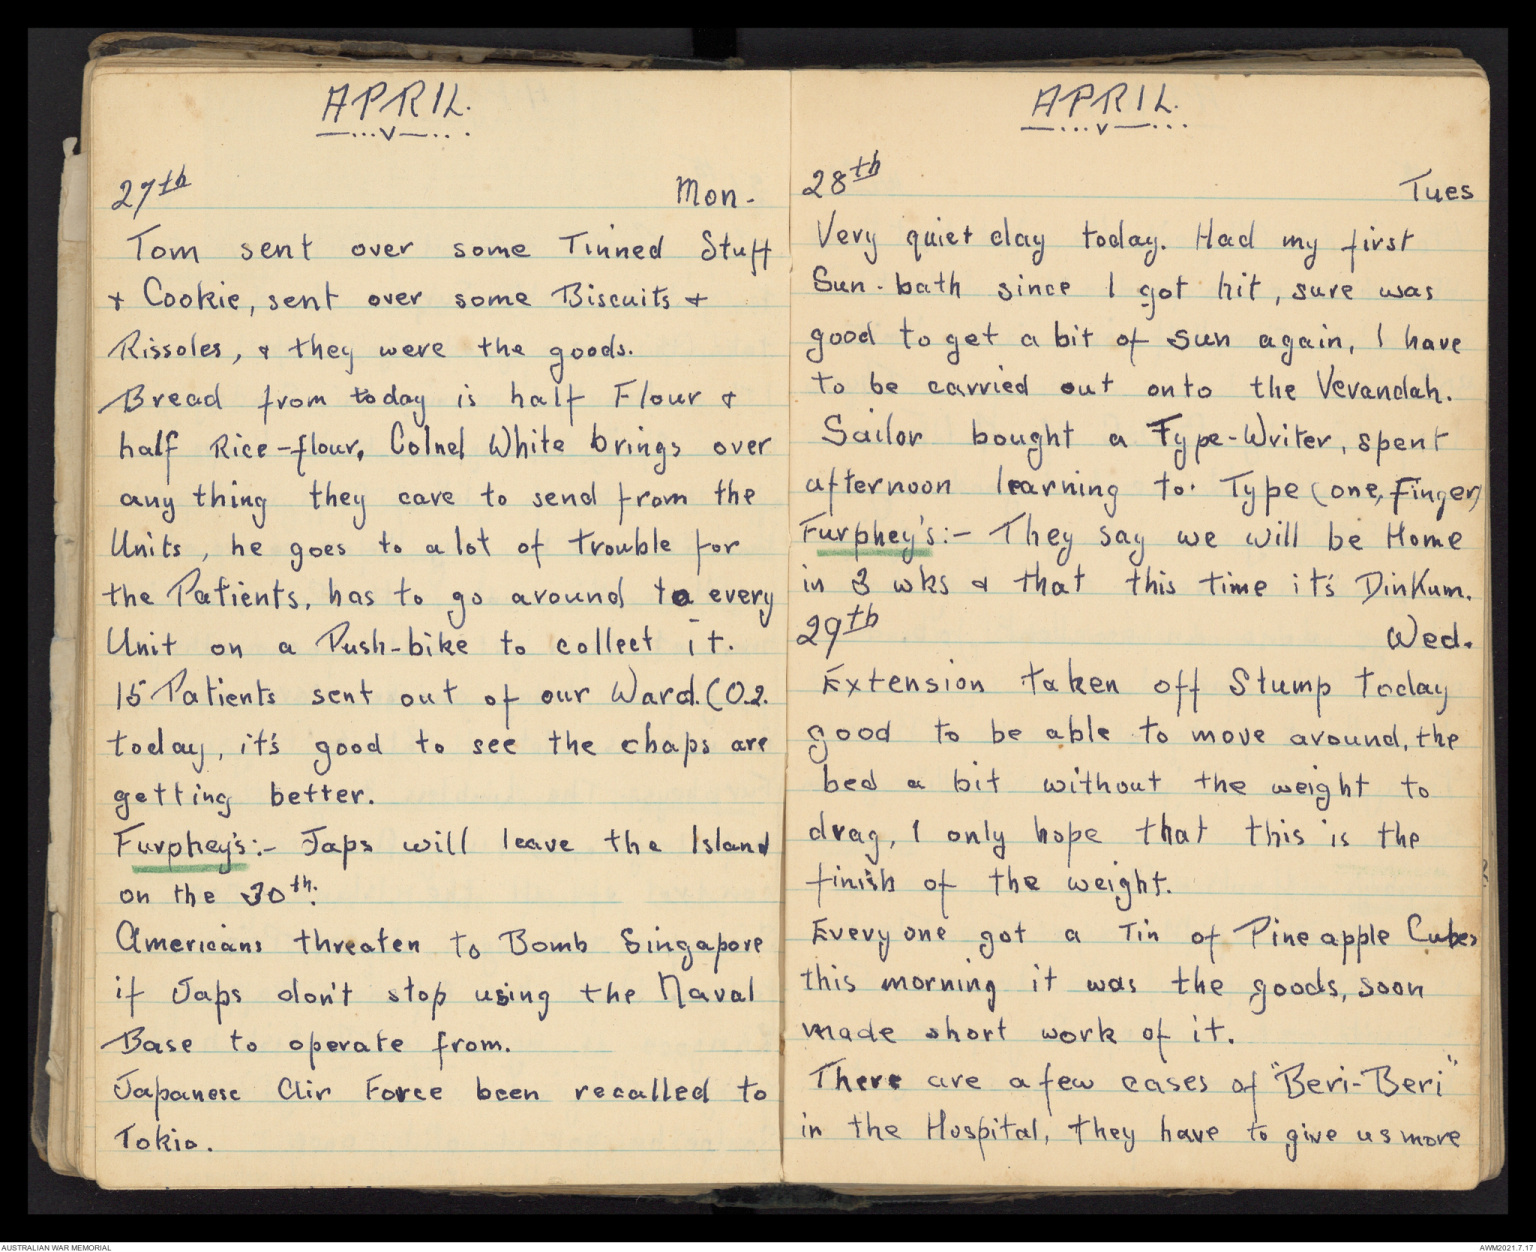 APRIL.
27th Mon.
Tom sent over some Tinned Stuff
& Cookie, sent over some Biscuits &
Rissoles, & they were the goods.
Bread from today is half Flour &
half Rice-flour, Colnel White brings over
any thing they care to send from the
Units, he goes to a lot of trouble for
the Patients, has to go around to every
Unit on a Push-bike to collect it.
15 Patients sent out of our Ward. (O.2.
today, it's good to see the chaps are
getting better.
Furphey's:- Japs will leave the Island
on the 30th.
Americans threaten to Bomb Singapore
if Japs don't stop using the Naval
Base to operate from.
Japanese Air Force been recalled to
Tokio.
APRIL.
28th Tues
Very quiet day today. Had my first
Sun-bath since I got hit, sure was
good to get a bit of sun again, I have
to be carried out onto the Verandah.
Sailor bought a Type-Writer, spent
afternoon learning to Type (one, Finger)
Furphey's:- They say we will be Home
in 3 wks & that this time it's Dinkum.
29th Wed.
Extension taken off Stump today
good to be able to move around, the
bed a bit without the weight to
drag, I only hope that this is the
finish of the weight.
Every one got a Tin of Pine apple Cubes
this morning it was the goods, soon
made short work of it.
There are a few cases of "Beri-Beri"
in the Hospital, they have to give us more
AUSTRALIAN WAR MEMORIAL AWM2021.7.17